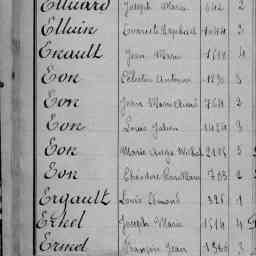 Elluard Joseph Marie 642 2
Elluin Evariste Raphael 1044 3
Enault Jean Marie 1618 4
Eon Célestin Antoine 1230 3
Eon Jean Marie 764 2
Eon Louis Julien 1424 3
Eon Marie Ange Michel 2106 5
Eon Théodore 703 2
Ergault Louis Edmond 326 1
Ermel Joseph Marie 1514 4
Ermel François Jean 1360 3